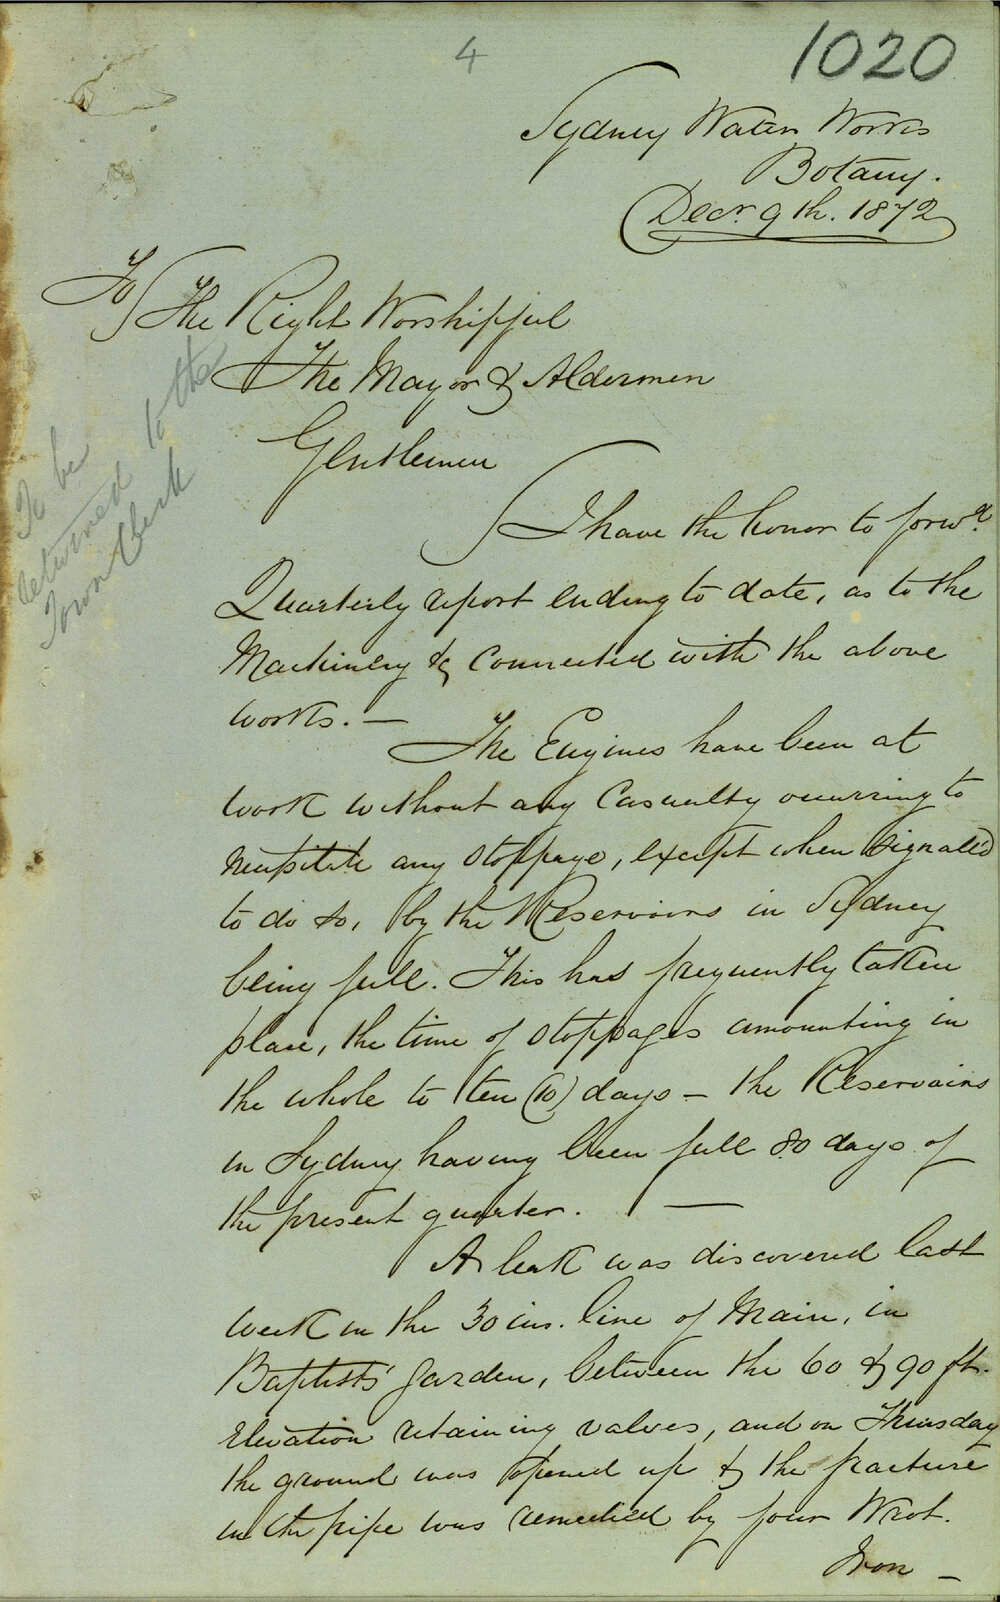 4
1020
Sydney Water Works
Botany.
Decr. 9th. 1872
To The Right Worshipful
The Mayor & Aldermen
To be
returned to the
Town Clerk
Gentlemen
I have the honor to forwd.
Quarterly report ending to date, as to the
Machinery &c connected with the above
works. —
The Engines have been at
work without any Casualty occurring to
necessitate any stoppage, except when signaled
to do so, by the Reservoirs in Sydney
being full. This has frequently taken
place, the time of stoppages amounting in
the whole to ten (10) days — the Reservoirs
in Sydney having been full 80 days of
the present quarter. —
A leak was discovered last
week in the 30 ins. line of Main, in
Baptists' Garden, between the 60 & 90 ft.
Elevation retaining valves, and on Thursday
the ground was opened up & the fracture
in the pipe was remedied by four Wrot.
Iron —